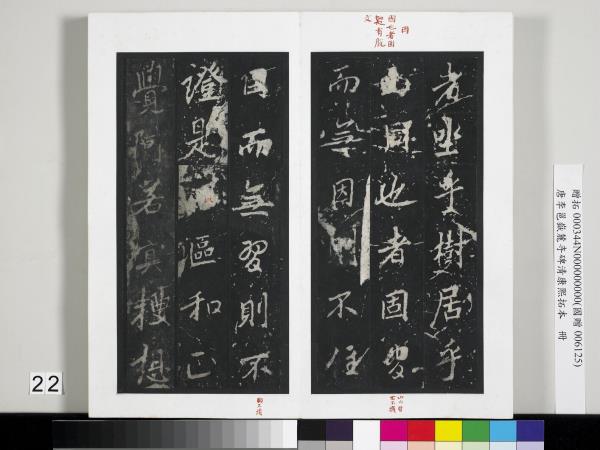 者坐乎樹居乎
山因也者因習
而無因則不住
因而無習則不
證是漚和正
覺阿若真種想
22
贈拓 000344N000000000(國贈 006125)
唐李邕嶽麓寺碑清康熙拓本 冊